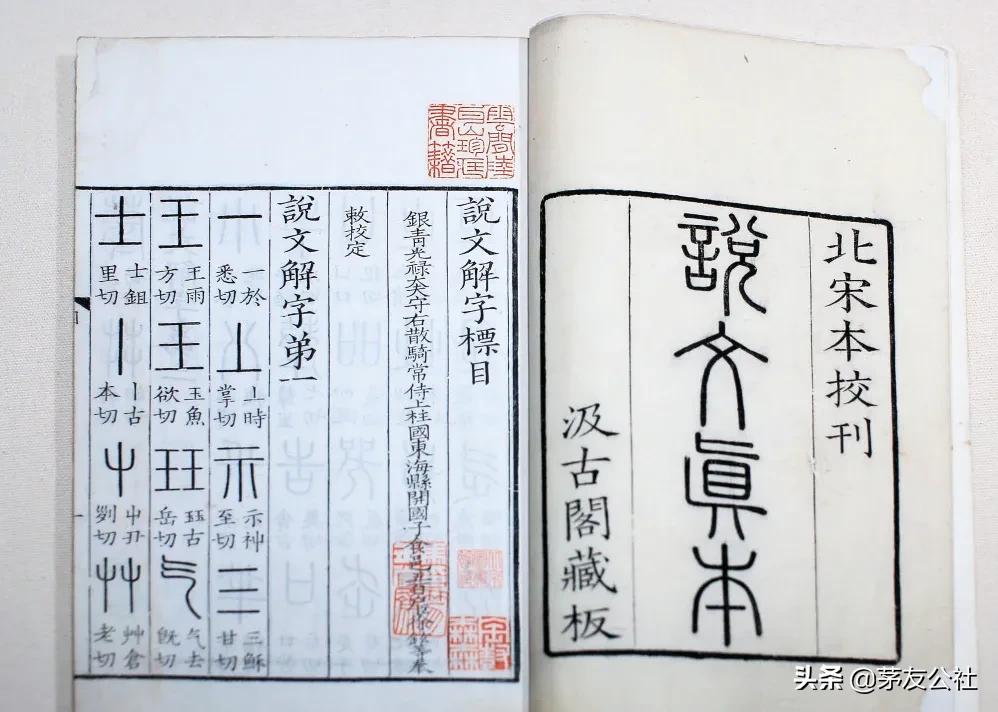 北宋本挍刊
說文眞本
汲古閣藏板
雲間陸
耳山珍藏
書籍
說文解字標目
銀青光祿大夫守右散騎常侍上柱國東海縣開國子食邑五百戶臣徐鉉等奉
敕校定
說文解字弟一
一 一於悉切 丄 丄時掌切 示 示神至切 三 三穌甘切
王 王雨方切 王 玉魚欲切 玨 玨古岳切 气 气去旣切
士 士鉏里切 丨 丨古本切 屮 屮丑列切 艸 艸倉老切
头条 @茅友公社